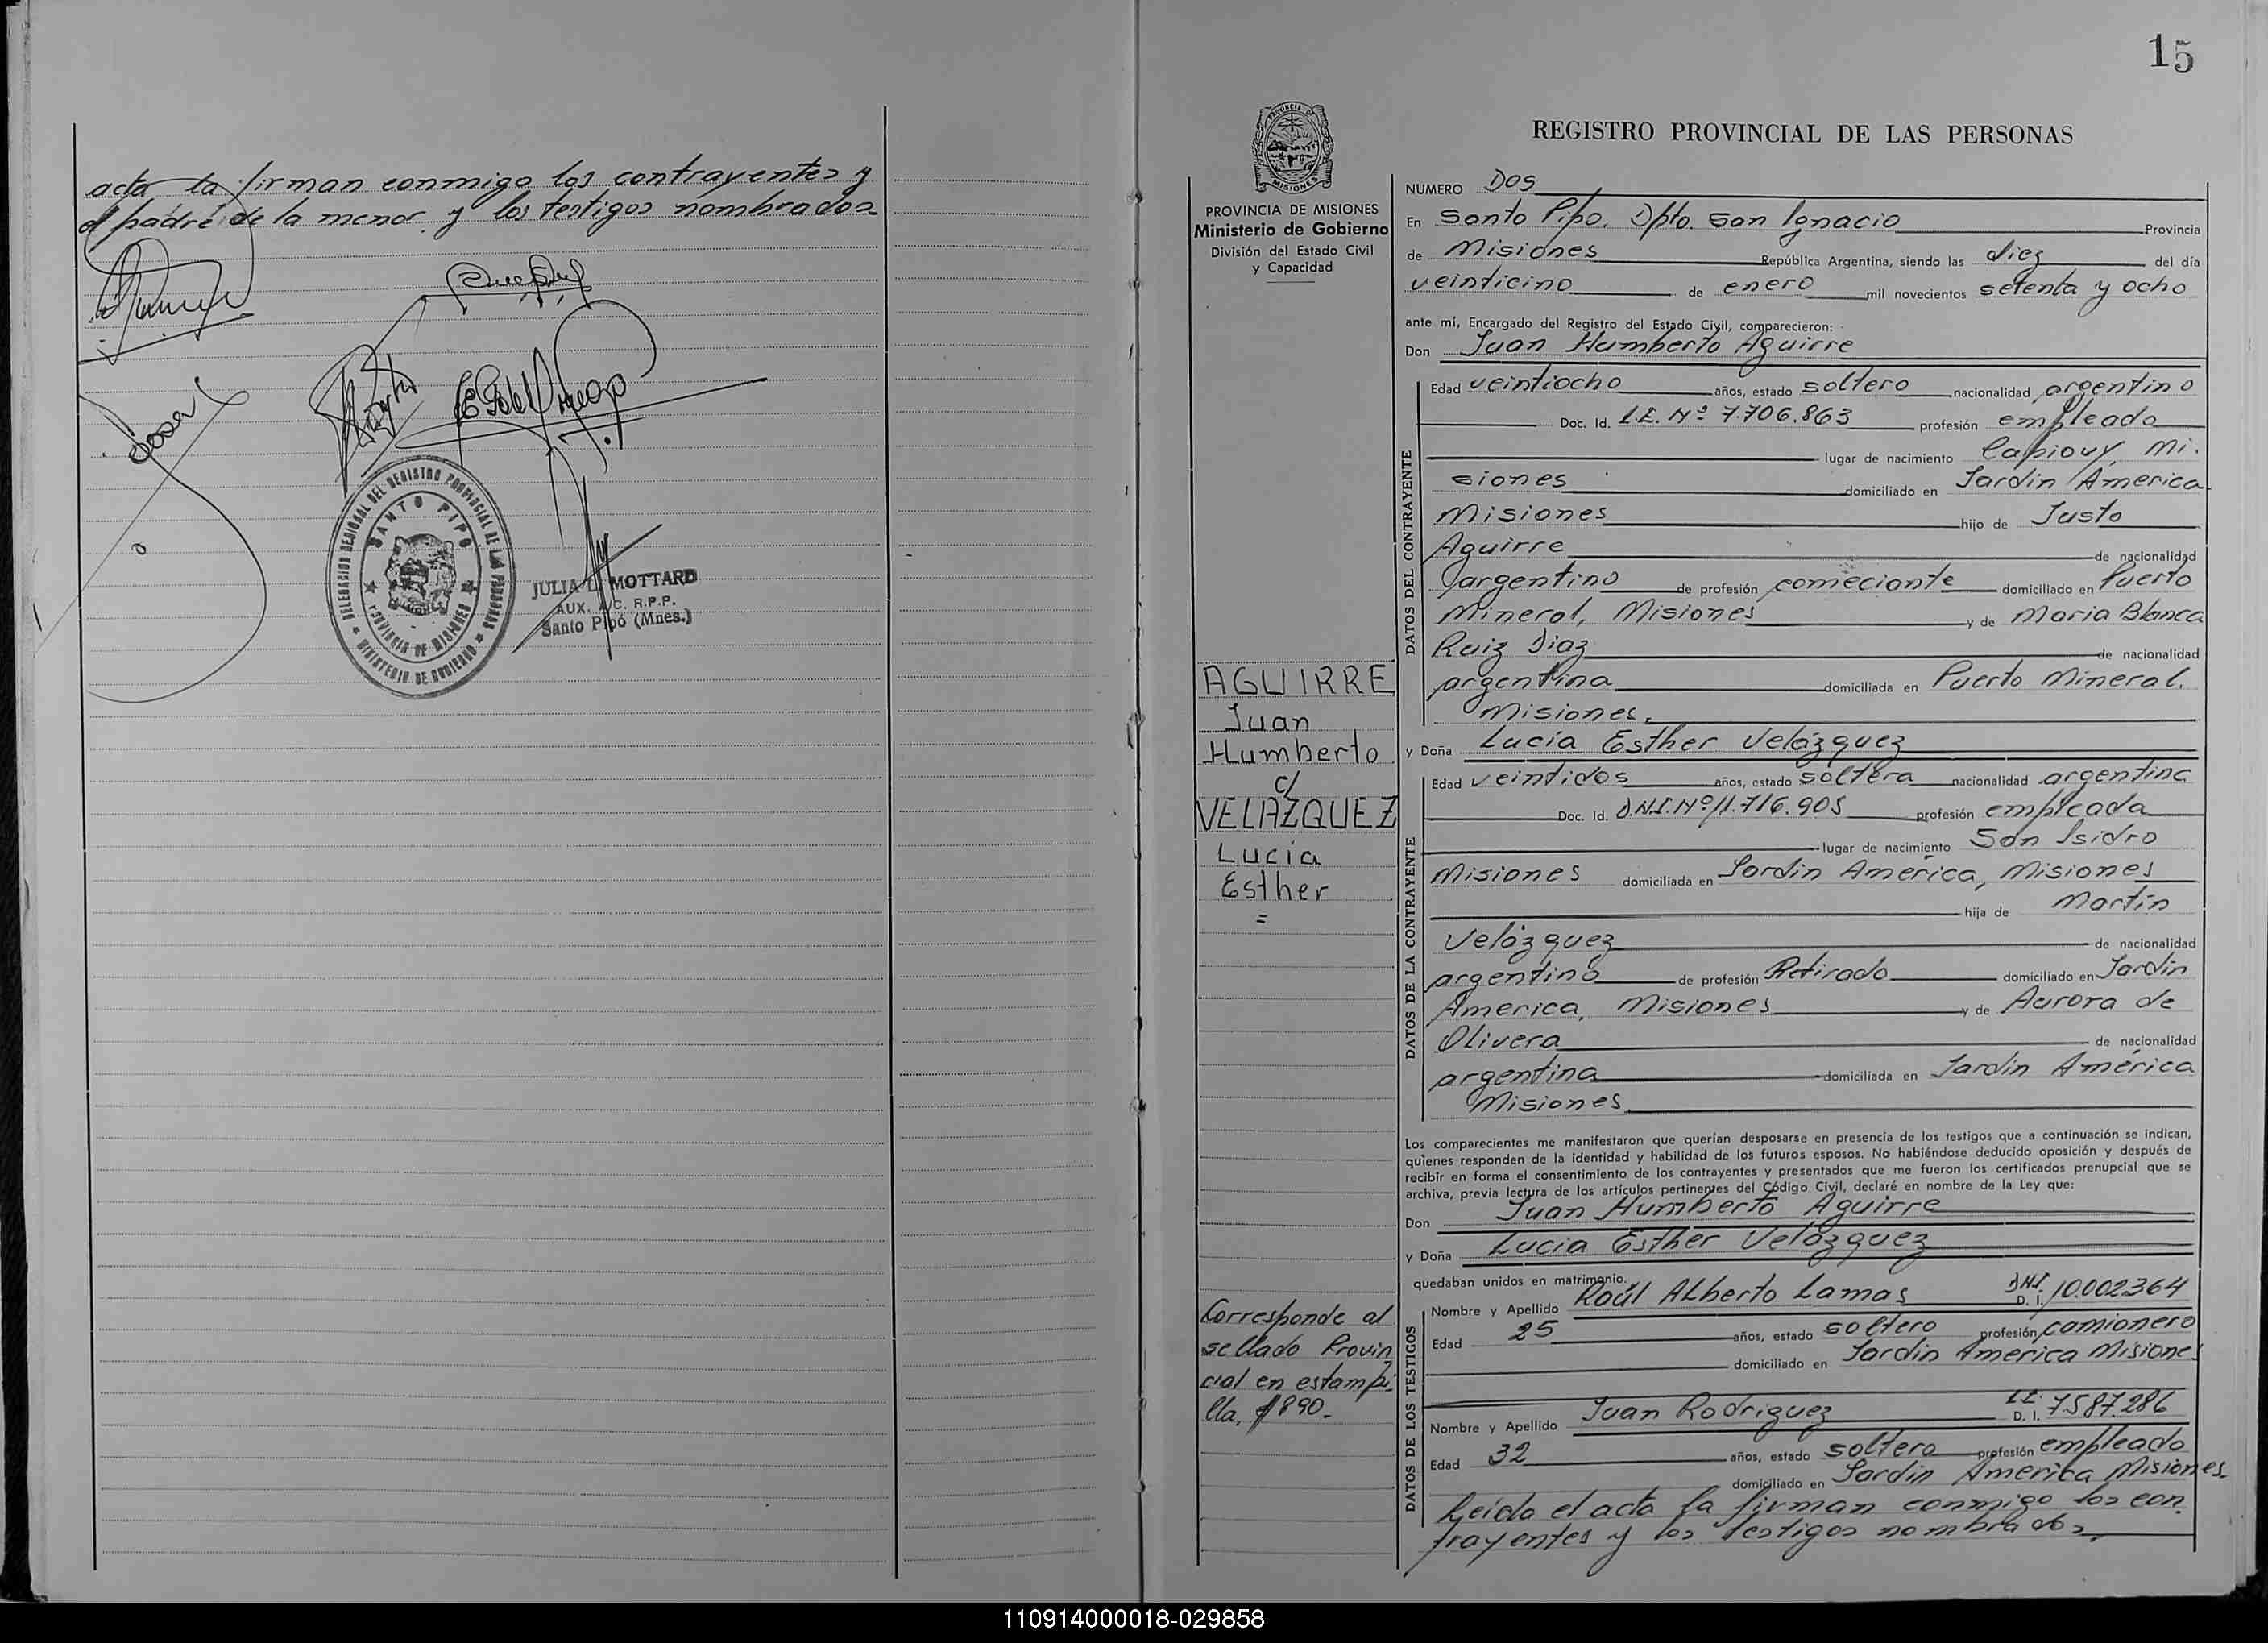 acta la firman conmigo los contrayentes y
el padre de la menor y los testigos nombrados
DELEGACION REGIONAL DEL REGISTRO PROVINCIAL DE LAS PERSONAS
SANTO PIPO
PROVINCIA DE MISIONES
MINISTERIO DE GOBIERNO
JULIA L. MOTTARD
AUX. A/C. R.P.P.
Santo Pipó (Mnes.)
15
PROVINCIA DE MISIONES
Ministerio de Gobierno
División del Estado Civil
y Capacidad
AGUIRRE
Juan
Humberto
c/
VELAZQUEZ
Lucia
Esther
=
Corresponde al
sellado Provin
cial en estampi
lla, $ 890.-
REGISTRO PROVINCIAL DE LAS PERSONAS
NUMERO Dos
En Santo Pipo. Dpto. San Ignacio Provincia
de Misiones República Argentina, siendo las diez del día
veinticino de enero mil novecientos setenta y ocho
ante mí, Encargado del Registro del Estado Civil, comparecieron:
Don Juan Humberto Aguirre
DATOS DEL CONTRAYENTE
Edad veintiocho años, estado soltero nacionalidad argentino
Doc. Id. L.E. Nº 7.706.863 profesión empleado
lugar de nacimiento Capiovy, Mi.
siones domiciliado en Jardin America
Misiones hijo de Justo
Aguirre de nacionalidad
argentino de profesión comeciante domiciliado en Puerto
Mineral, Misiones y de Maria Blanca
Ruiz Diaz de nacionalidad
argentina domiciliada en Puerto Mineral.
Misiones.
y Doña Lucía Esther Velázquez
DATOS DE LA CONTRAYENTE
Edad veintidos años, estado soltera nacionalidad argentina
Doc. Id. D.N.I. Nº 11.716.905 profesión empleada
lugar de nacimiento San Isidro
Misiones domiciliada en Jardin America, Misiones
hija de Martín
Velázquez de nacionalidad
argentino de profesión Retirado domiciliado en Jardin
America, Misiones y de Aurora de
Olivera de nacionalidad
argentina domiciliada en Jardín América
Misiones
Los comparecientes me manifestaron que querían desposarse en presencia de los testigos que a continuación se indican,
quienes responden de la identidad y habilidad de los futuros esposos. No habiéndose deducido oposición y después de
recibir en forma el consentimiento de los contrayentes y presentados que me fueron los certificados prenupcial que se
archiva, previa lectura de los artículos pertinentes del Código Civil, declaré en nombre de la Ley que:
Don Juan Humberto Aguirre
y Doña Lucia Esther Velázquez
quedaban unidos en matrimonio.
DATOS DE LOS TESTIGOS
Nombre y Apellido Raúl Alberto Lamas D.N.I. D. I. 10.002.364
Edad 25 años, estado soltero profesión camionero
domiciliado en Jardin America Misiones
Nombre y Apellido Juan Rodriguez L.E. D. I. 7.587.286
Edad 32 años, estado soltero profesión empleado
domiciliado en Jardin America Misiones.
Leída el acta la firman conmigo los con
trayentes y los testigos nombrados
110914000018-029858